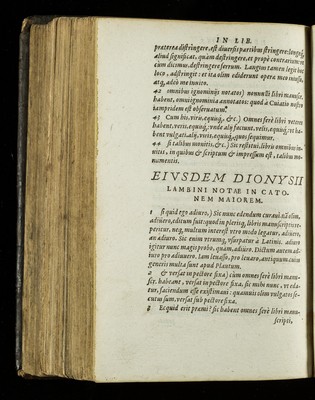 IN LIB.
præterea distringere, est diuersis partibus stringere: longéq́;
aliud significat, quàm destringere, et propè contrarium: vt
cùm dicimus, destringere ferrum. Langius tamen legit hoc
loco, adstringit: et ita olim ediderunt opera meo iniussu,
atq́, adeò me inuito.
42 omnibus ignominijs notatos) nonnulli libri manusc.
habent, omni ignominia annotatos: quod à Cuiatio nostro
iampridem est obseruatum.
43 Cùm his, viro, equiúq́, &c.) Omnes ferè libri veteres
habent, veris. equiq́; vnde alij faciunt. velis, equiq́; vt ha-
bent vulgati. alij, viris, equiq́, quos sequimur.
44 si talibus monitis, &c.) Sic restitui. libris omnibus in-
uitis, in quibus & scriptum & impressum est, talibus mo-
numentis.
EIVSDEM DIONYSII
LAMBINI NOTAE IN CATO-
NEM MAIOREM.
1 si quid ego adiuro,) Sic nunc edendum curaui. nā olim,
adiuero, editum fuit: quod in plerisq́, libris manuscriptis re-
peritur. neq, multum interest vtro modo legatur, adiuero,
an adiuro. Sic enim vtrumq́, vsurpatur à Latinis. adiuro
igitur nunc magis probo, quàm, adiuero. Dictum autem ad-
iuro pro adiuuero. iam leuasso, pro leuaro, antiquum. cuius
generis multa sunt apud Plautum.
2 & versat in pectore fixa) cùm omnes ferè libri manu-
scr. habeant, versat in pectore fixa. sic mihi nunc, vt eda-
tur, faciendum esse existimaui: quamuis olim vulgatos se-
cutus sum. versat sub pectore fixa.
3 Ecquid erit præmi? sic habent omnes ferè libri manu-
scripti,